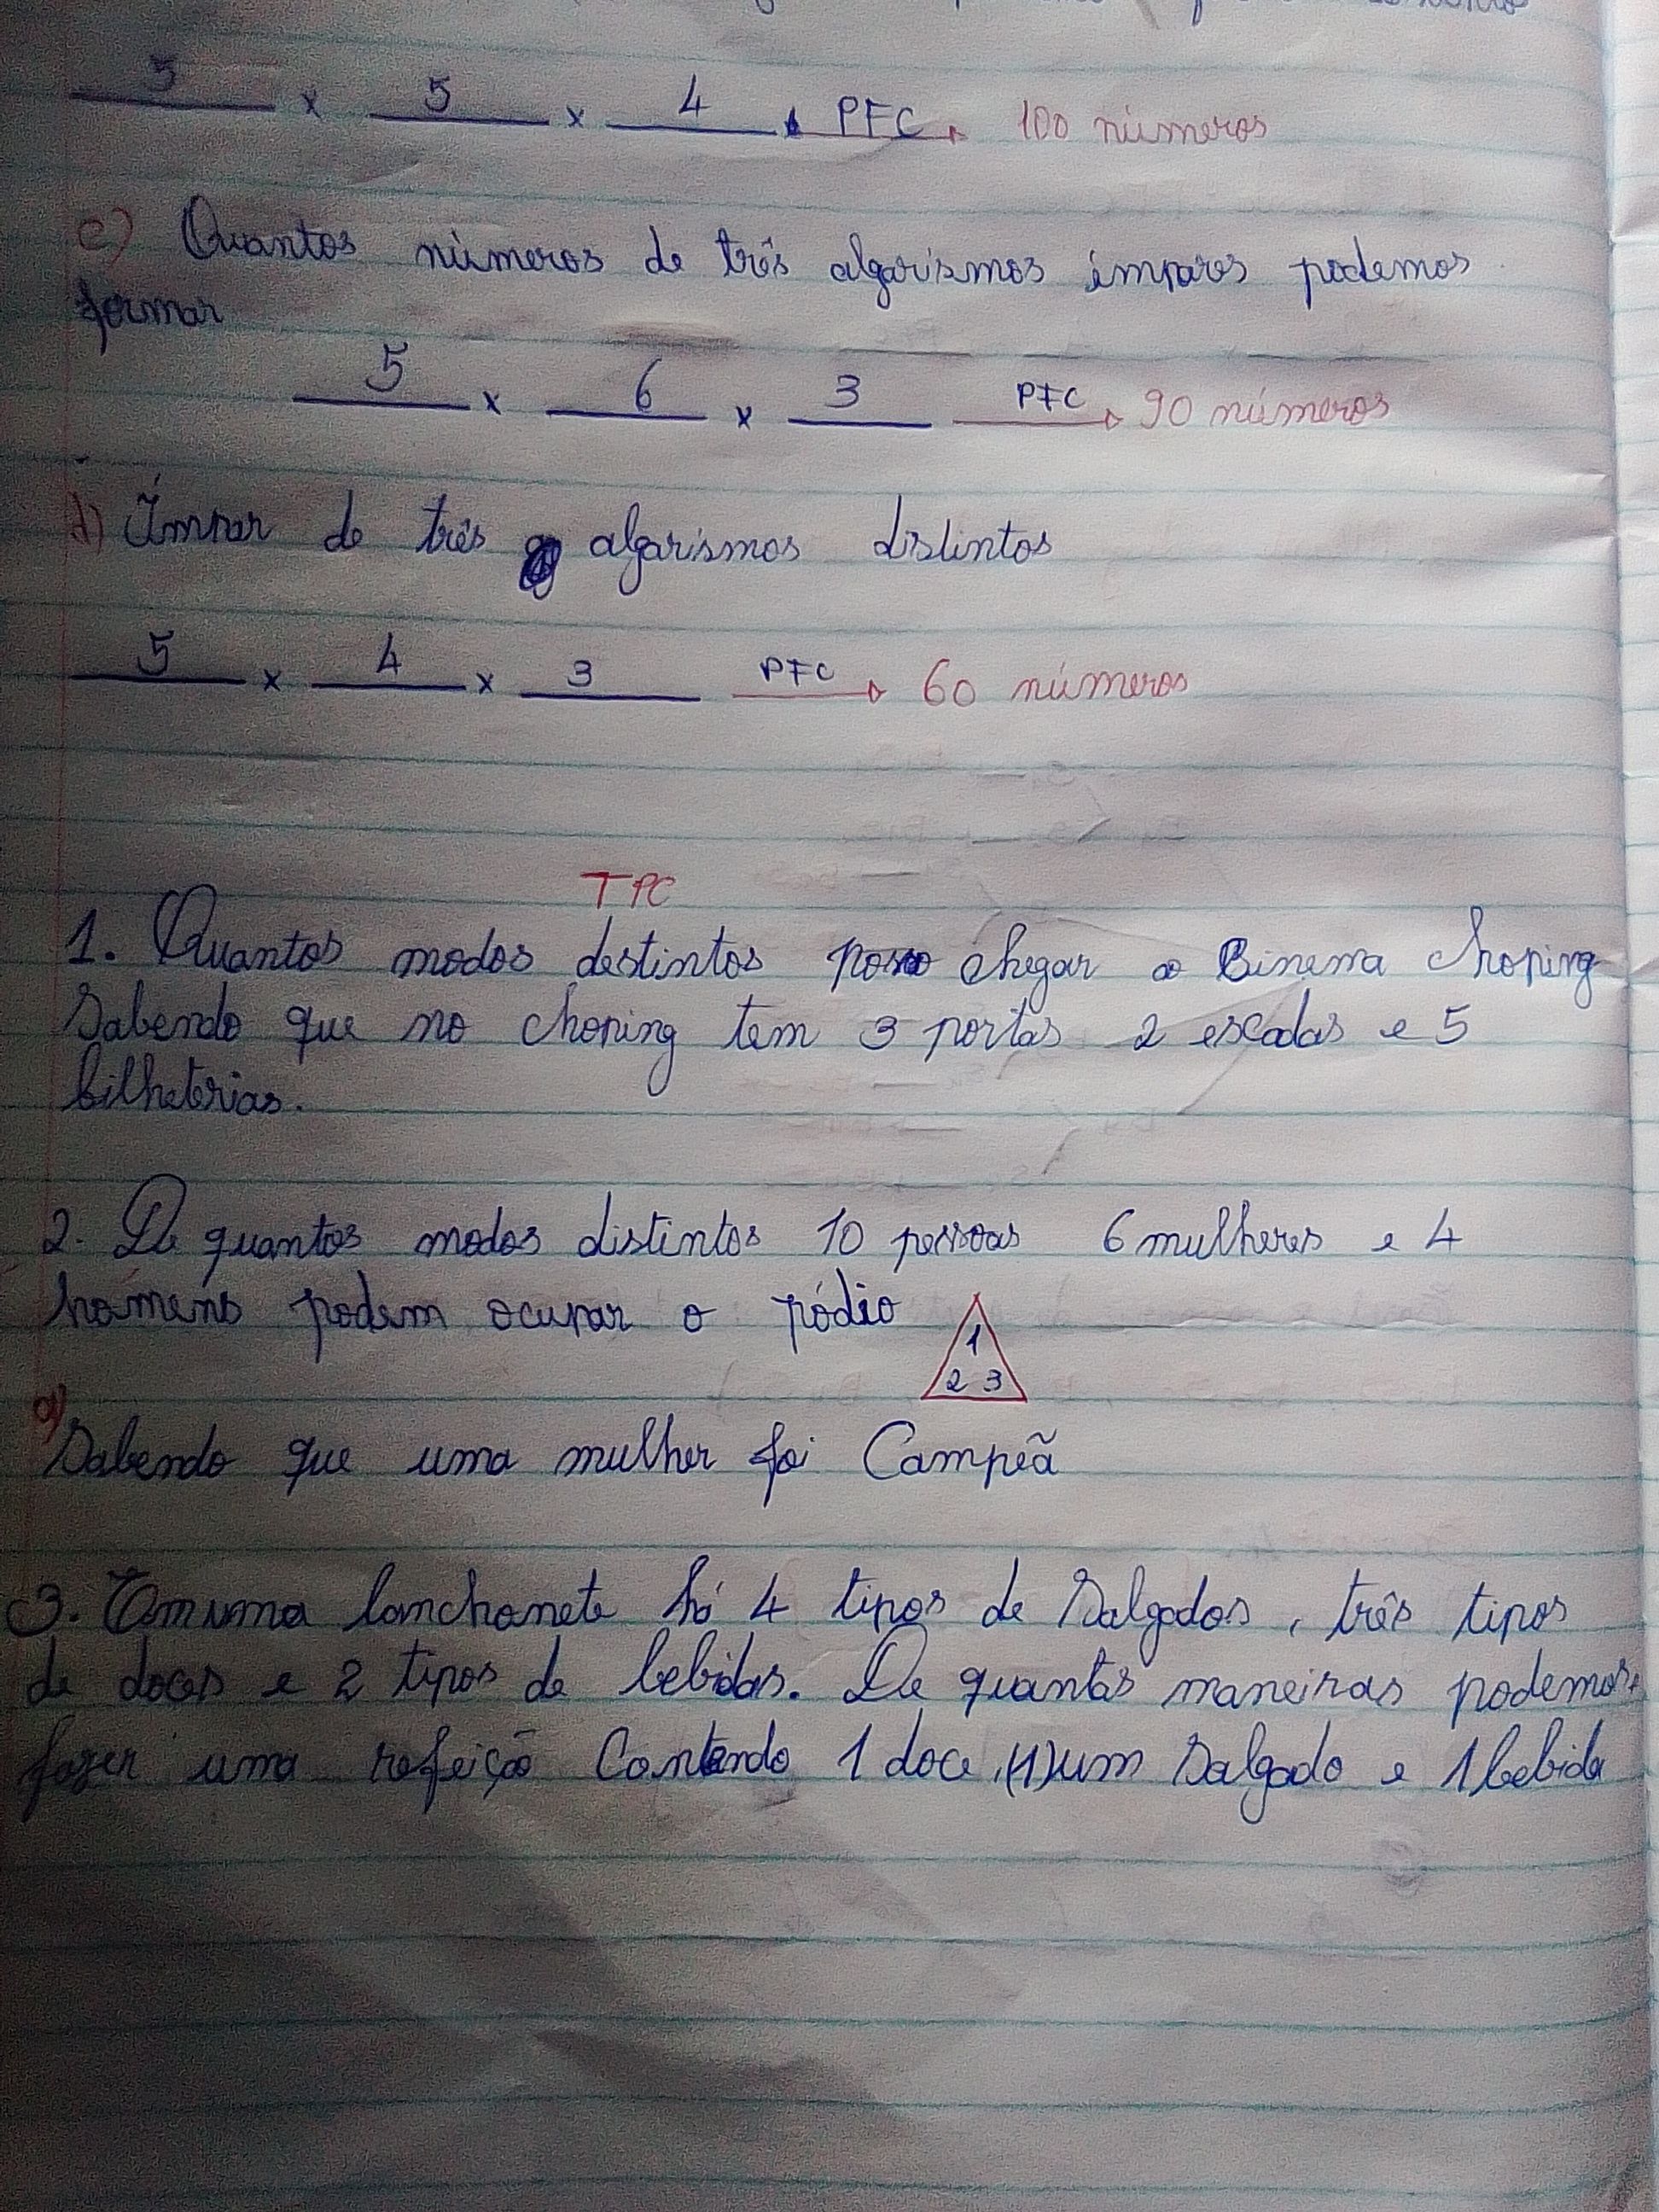 5 x 5 x 4 PFC 100 números
c) Quantos números de três algarismos ímpares podemos
formar
5 x 6 x 3 PFC 90 números
d) Ímpar de três algarismos distintos
5 x 4 x 3 PFC 60 números
TPC
1. Quantos modos destintos posso chegar a Cinema choping
Sabendo que no choping tem 3 portas 2 escadas e 5
bilheterias.
2. De quantos modos distintos 10 pessoas 6 mulheres e 4
homens podem ocupar o pódio
1
2 3
a)
Sabendo que uma mulher foi Campeã
3. Em uma lanchonete há 4 tipos de Salgados, três tipos
de doces e 2 tipos de bebidas. De quantas maneiras podemos
fazer uma refeição Contendo 1 doce, (1) um Salgado e 1 bebida